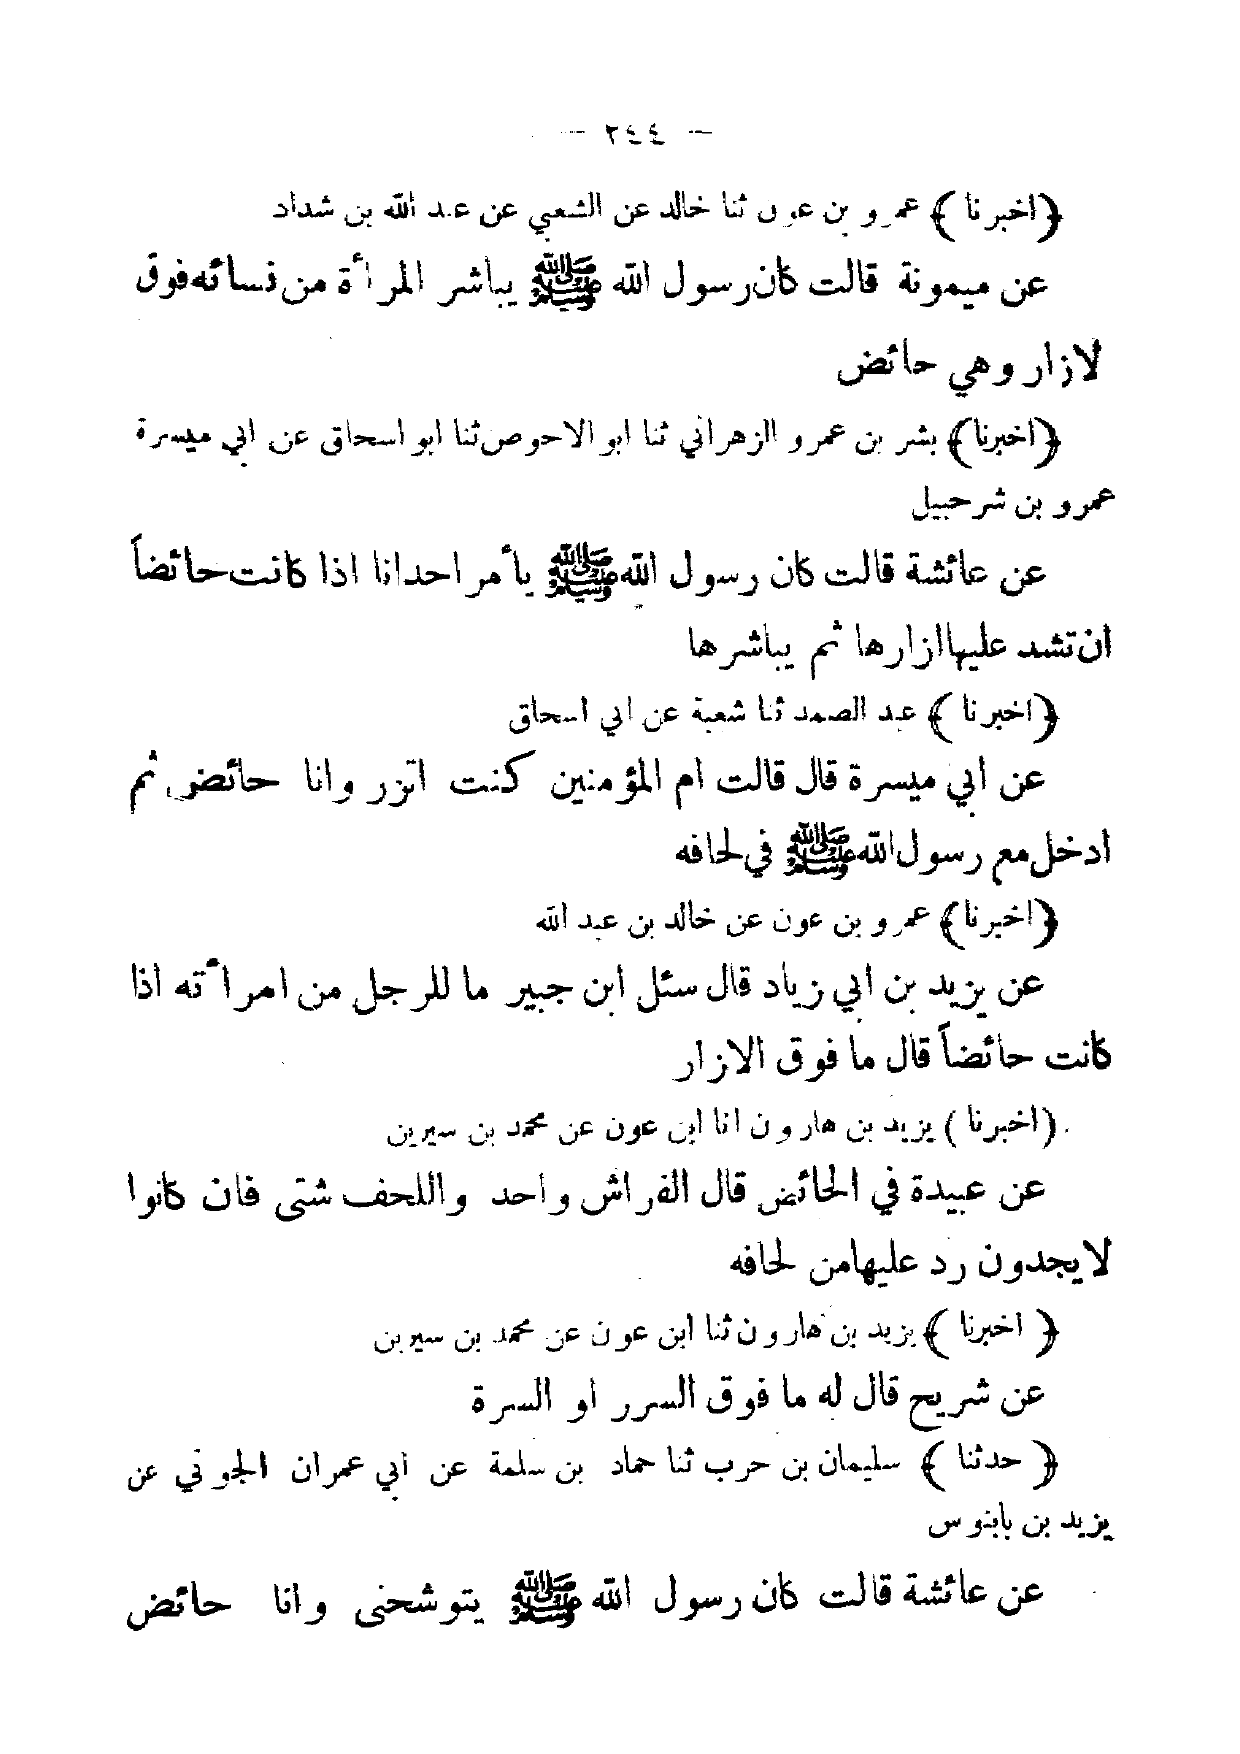 — ٢٤٤ —
﴿اخبرنا﴾ عمرو بن عون ثنا خالد عن الشعبي عن عبد الله بن شداد
عن ميمونة قالت كان رسول الله ﷺ يباشر المرأة من نسائه فوق
لازار وهي حائض
﴿اخبرنا﴾ بشر بن عمرو الزهراني ثنا ابو الاحوص ثنا ابو اسحاق عن ابي ميسرة
عمرو بن شرحبيل
عن عائشة قالت كان رسول الله ﷺ يأمر احدانا اذا كانت حائضاً
ان تشد عليها ازارها ثم يباشرها
﴿اخبرنا﴾ عبد الصمد ثنا شعبة عن ابي اسحاق
عن ابي ميسرة قال قالت ام المؤمنين كنت اتزر وانا حائض ثم
ادخل مع رسول الله ﷺ في لحافه
﴿اخبرنا﴾ عمرو بن عون عن خالد بن عبد الله
عن يزيد بن ابي زياد قال سئل ابن جبير ما للرجل من امرأته اذا
كانت حائضاً قال ما فوق الازار
(اخبرنا) يزيد بن هارون انا ابن عون عن محمد بن سيرين
عن عبيدة في الحائض قال الفراش واحد واللحف شتى فان كانوا
لا يجدون رد عليها من لحافه
﴿اخبرنا﴾ يزيد بن هارون ثنا ابن عون عن محمد بن سيرين
عن شريح قال له ما فوق السرر او السرة
﴿حدثنا﴾ سليمان بن حرب ثنا حماد بن سلمة عن ابي عمران الجوني عن
يزيد بن بابنوس
عن عائشة قالت كان رسول الله ﷺ يتوشحنى وانا حائض